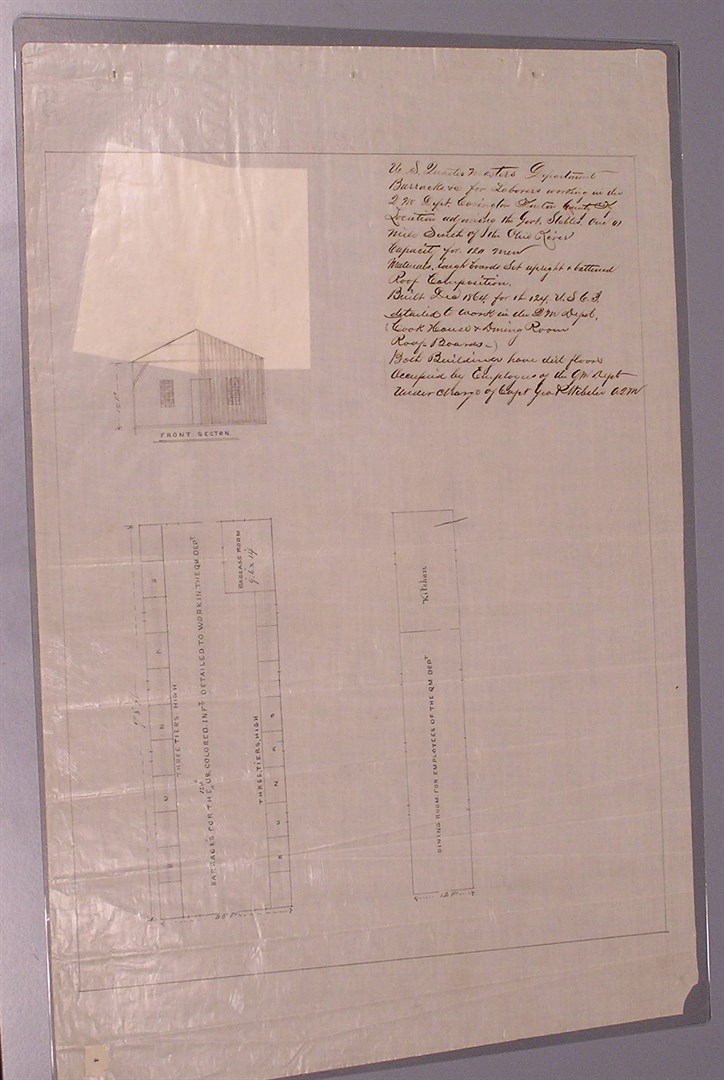 U. S. Quarter Masters Department
Barracks &c for Laborers working in the
Q M Dept. Covington Kenton County, Ky
Location adjoining the Govt. Stables. One
mile South of the Ohio River
Capacity for 120 men
Materials, rough boards Set upright & battened
Roof Composition.
Built Dec 1864 for the 124. U.S.C.I.
detailed to work in the Q M Dept.
(Cook House & Dining Room
Roof- Boards-)
Both Buildings have dirt floors
Occupied by Employees of the QM Dept
Under charge of Capt Geo Webster AQM
FRONT SECTION
BAGGAGE ROOM
9.6 x 14
B U N K S
THREE TIERS HIGH
BARRACKS FOR THE US COLORED INFY DETAILED TO WORK IN THE QM DEPT
THREE TIERS HIGH
B U N K S
Kitchen
DINING ROOM FOR EMPLOYEES OF THE QM DEPT